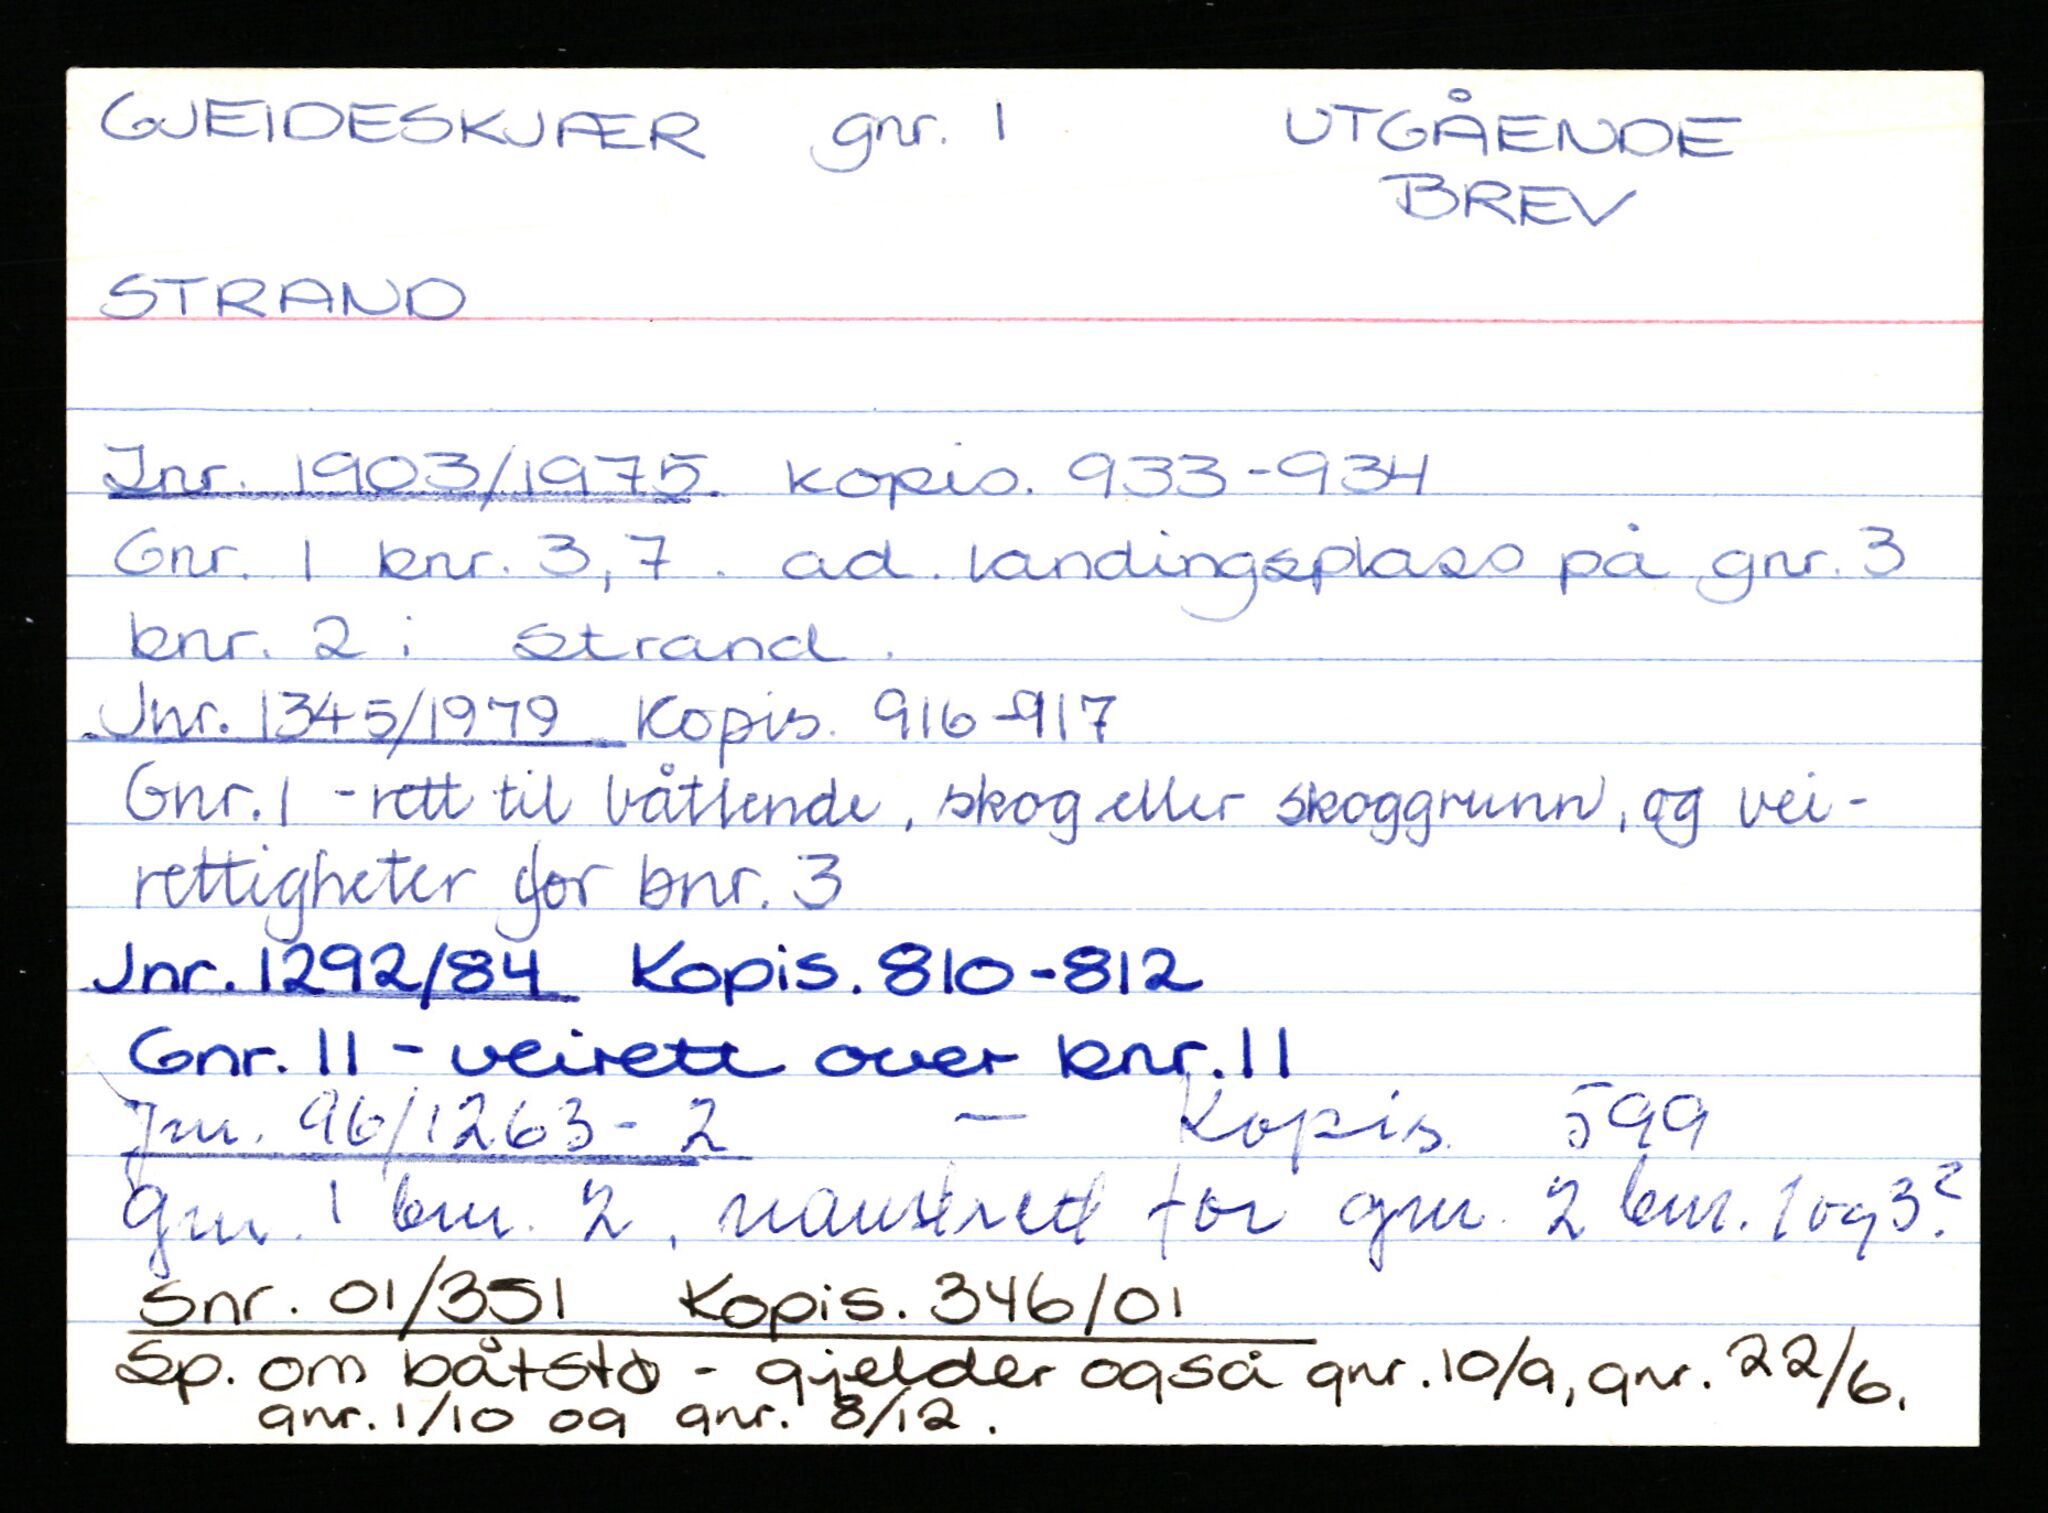 GJEIDESKJÆR gnr. 1 UTGÅENDE
BREV
STRAND
Jnr. 1903/1975. kopis. 933-934
Gnr. 1 bnr. 3, 7. ad. landingsplass på gnr. 3
bnr. 2 i Strand.
Jnr. 1345/1979 Kopis. 916-917
Gnr. 1 - rett til båtlende, skog eller skoggrunn, og vei-
rettigheter for bnr. 3
Jnr. 1292/84 Kopis. 810-812
Gnr. 11 - veirett over bnr. 11
Jnr. 96/1263-2 — Kopis. 599
gnr. 1 bnr. 2, naustrett for gnr. 2 bnr. 1 og 3?
Snr. 01/351 Kopis. 346/01
Sp. om båtstø - gjelder også gnr. 10/9, gnr. 22/6.
gnr. 1/10 og gnr. 8/12.